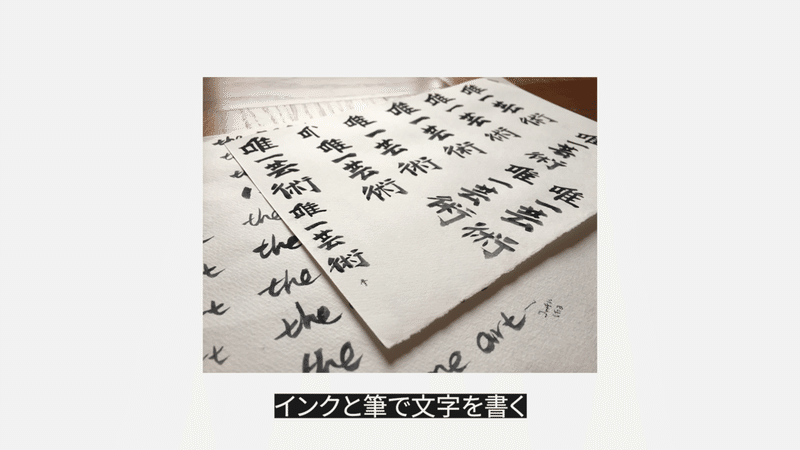 唯一芸術
唯一芸術
唯
唯一芸術
唯一芸術
唯一芸術
唯一芸術
唯一芸術
唯一芸術
唯一芸術
the
the
the
the
the
the art
インクと筆で文字を書く